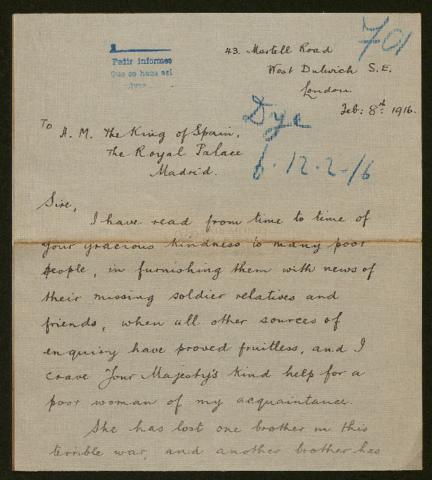 1
Pedir informes
Que se haga así
701
43. Martell Road
West Dulwich S.E.
London
Feb: 8th 1916.
Dye
6-12-2-16
To
A. M. The King of Spain,
The Royal Palace
Madrid.
Sire,
I have read from time to time of
your gracious kindness to many poor
people, in furnishing them with news of
their missing soldier relatives and
friends, when all other sources of
enquiry have proved fruitless, and I
crave Your Majesty's kind help for a
poor woman of my acquaintance.
She has lost one brother in this
terrible war, and another brother has